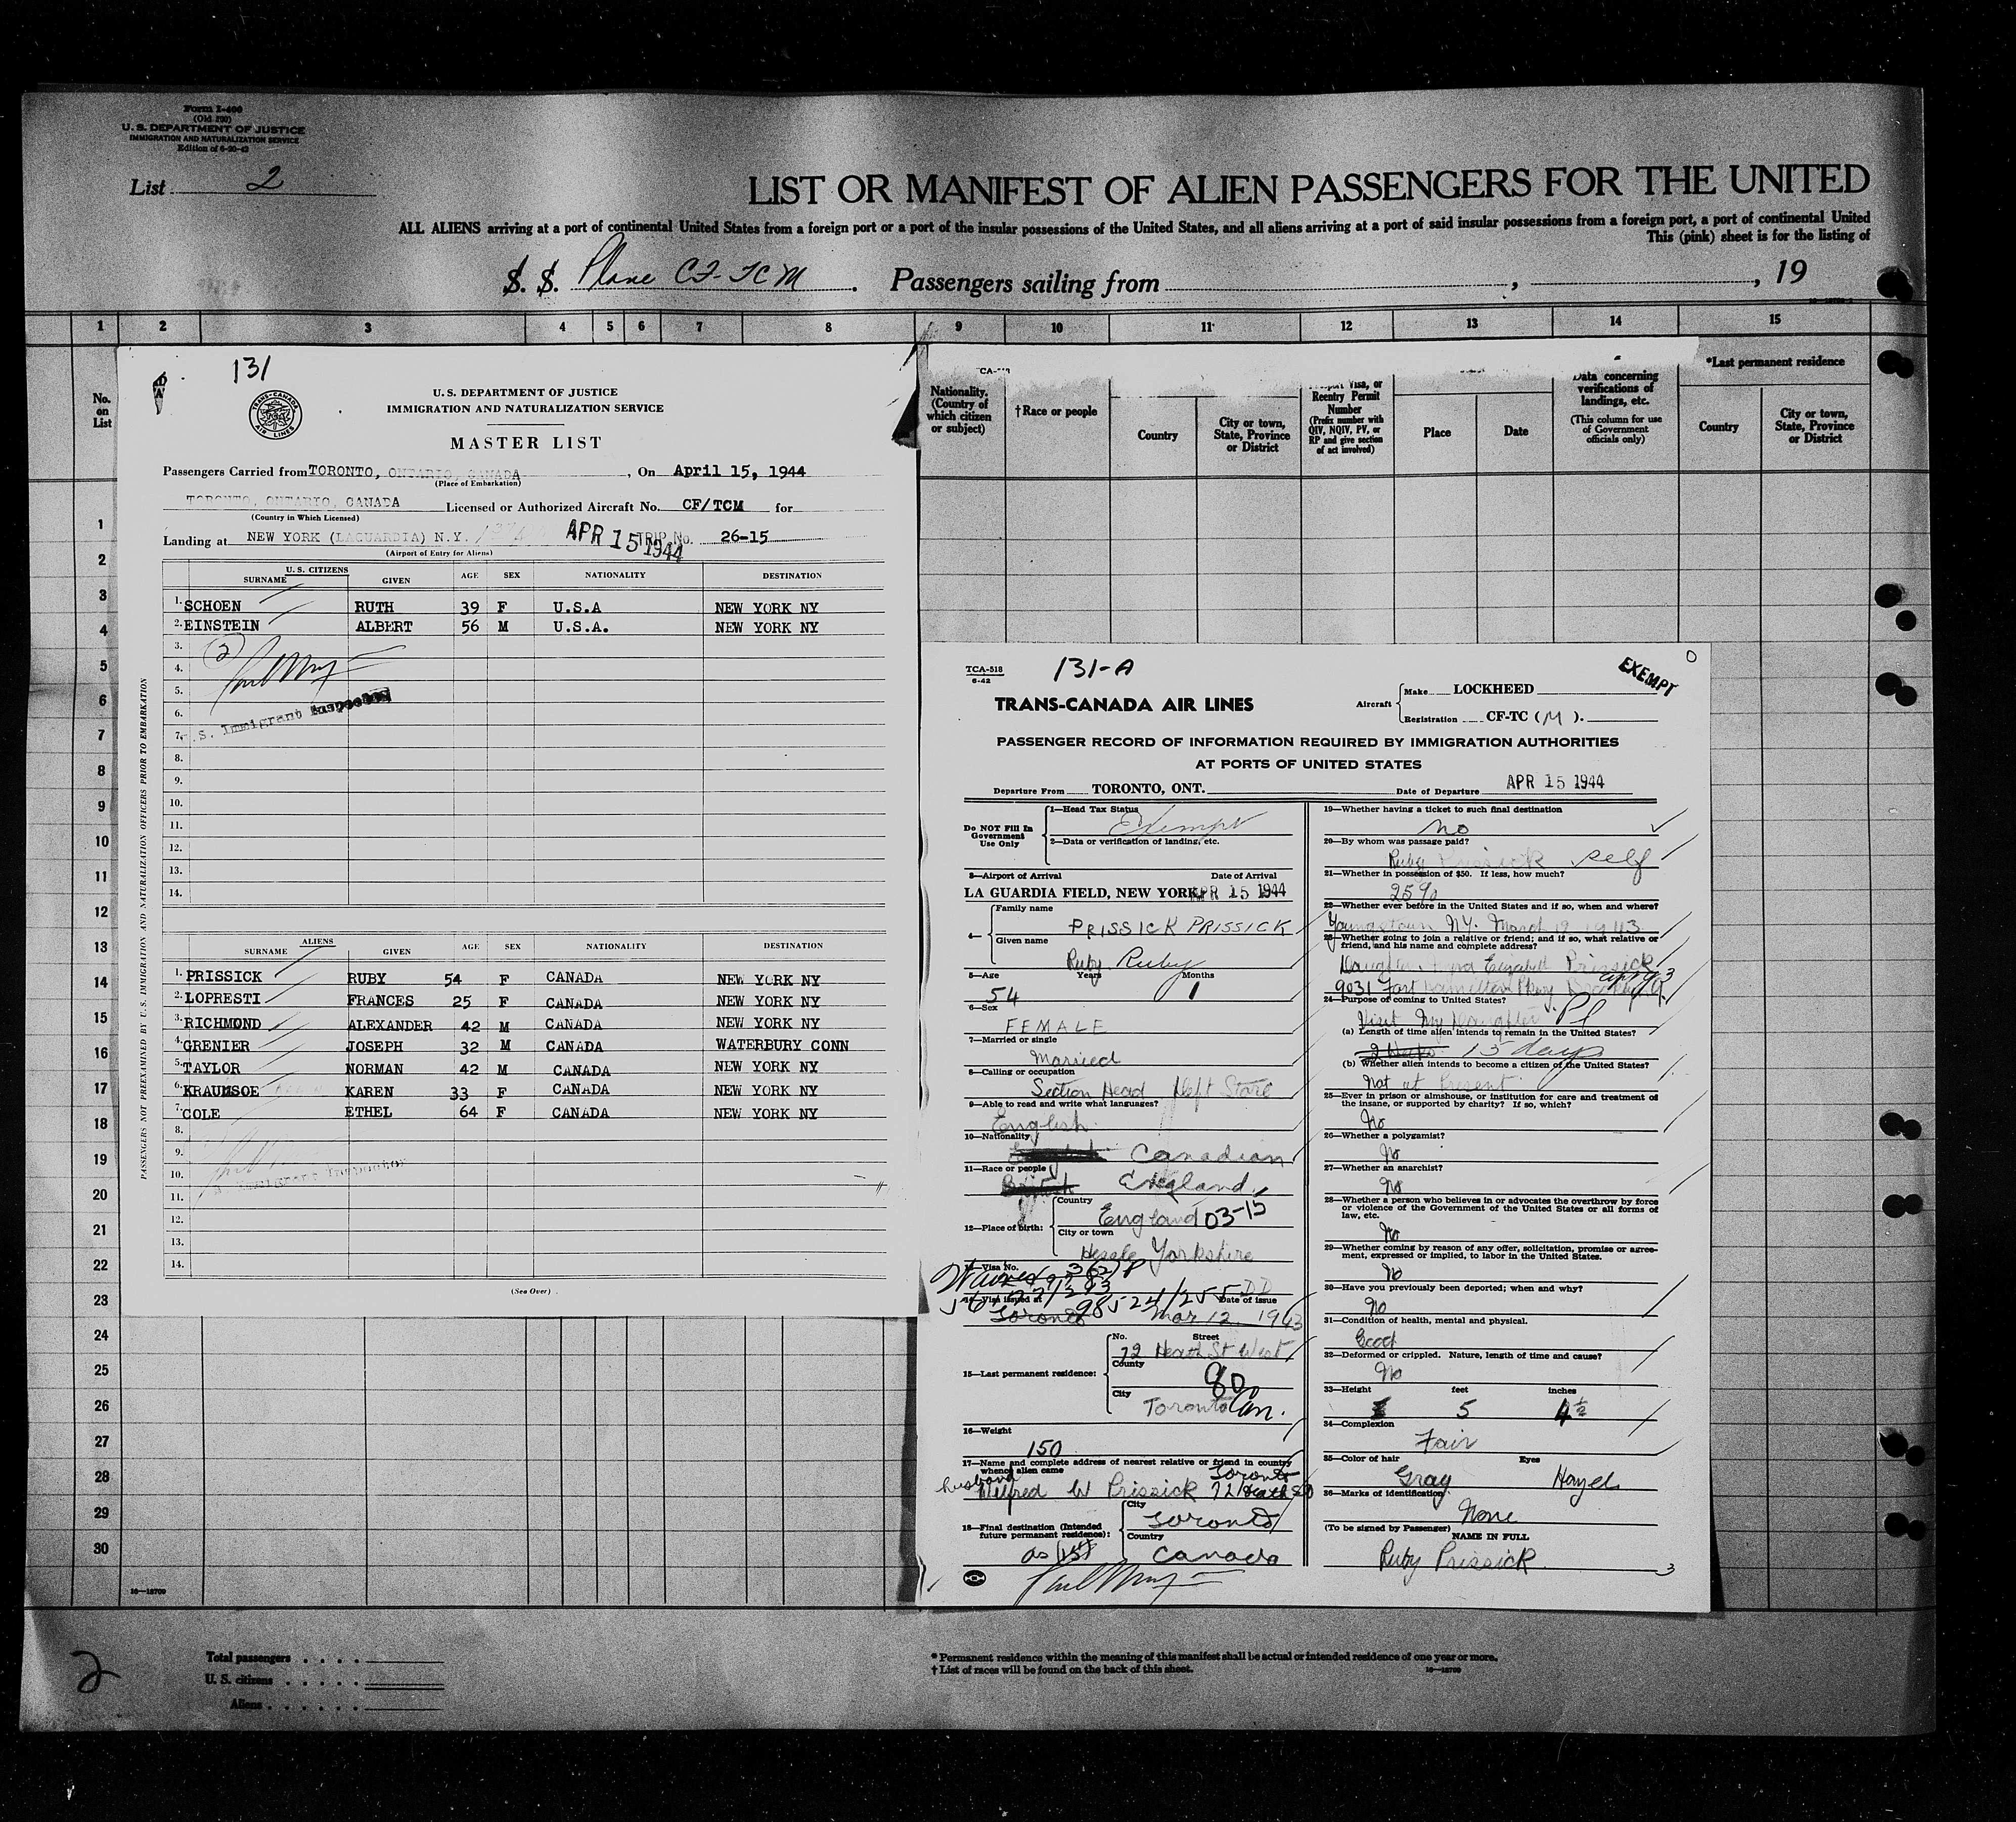 Form I-400
(Old 200)
U. S. DEPARTMENT OF JUSTICE
IMMIGRATION AND NATURALIZATION SERVICE
Edition of 6-20-42
List 2
LIST OR MANIFEST OF ALIEN PASSENGERS FOR THE UNITED
ALL ALIENS arriving at a port of continental United States from a foreign port or a port of the insular possessions of the United States, and all aliens arriving at a port of said insular possessions from a foreign port, a port of continental United
This (pink) sheet is for the listing of
S. S. Plane CF-TCM. Passengers sailing from , , 19
1 2 3 4 5 6 7 8 9 10 11 12 13 14 15
No. on List
1
2
3
4
5
6
7
8
9
10
11
12
13
14
15
16
17
18
19
20
21
22
23
24
25
26
27
28
29
30
131
TRANS-CANADA AIR LINES
U. S. DEPARTMENT OF JUSTICE
IMMIGRATION AND NATURALIZATION SERVICE
MASTER LIST
Passengers Carried from TORONTO, ONTARIO, CANADA, On April 15, 1944
(Place of Embarkation)
TORONTO, ONTARIO, CANADA Licensed or Authorized Aircraft No. CF/TCM for
(Country in Which Licensed)
Landing at NEW YORK (LAGUARDIA) N.Y. APR 15 1944 TRIP No. 26-15
(Airport of Entry for Aliens)
U. S. CITIZENS
SURNAME GIVEN AGE SEX NATIONALITY DESTINATION
1. SCHOEN RUTH 39 F U.S.A NEW YORK NY
2. EINSTEIN ALBERT 56 M U.S.A. NEW YORK NY
3. (2)
4.
5.
6.
7. U.S. Immigrant Inspector
8.
9.
10.
11.
12.
13.
14.
ALIENS
SURNAME GIVEN AGE SEX NATIONALITY DESTINATION
1. PRISSICK RUBY 54 F CANADA NEW YORK NY
2. LOPRESTI FRANCES 25 F CANADA NEW YORK NY
3. RICHMOND ALEXANDER 42 M CANADA NEW YORK NY
4. GRENIER JOSEPH 32 M CANADA WATERBURY CONN
5. TAYLOR NORMAN 42 M CANADA NEW YORK NY
6. KRAUMSOE KAREN 33 F CANADA NEW YORK NY
7. COLE ETHEL 64 F CANADA NEW YORK NY
8.
9.
10. Immigrant Inspector
11.
12.
13.
14.
(See Over)
PASSENGERS NOT PREEXAMINED BY U. S. IMMIGRATION AND NATURALIZATION OFFICERS PRIOR TO EMBARKATION
Nationality. (Country of which citizen or subject)
†Race or people
Country
City or town, State, Province or District
Visa, or Reentry Permit Number (Prefix number with QIV, NQIV, PV, or RP and give section of act involved)
Place
Date
Data concerning verifications of landings, etc.
(This column for use of Government officials only)
*Last permanent residence
Country
City or town, State, Province or District
TCA-518
6-42
131-A
EXEMPT
TRANS-CANADA AIR LINES
Aircraft Make LOCKHEED
Registration CF-TC (M).
PASSENGER RECORD OF INFORMATION REQUIRED BY IMMIGRATION AUTHORITIES
AT PORTS OF UNITED STATES
Departure From TORONTO, ONT. Date of Departure APR 15 1944
Do NOT Fill In Government Use Only
1—Head Tax Status
Exempt
2—Data or verification of landing, etc.
3—Airport of Arrival Date of Arrival
LA GUARDIA FIELD, NEW YORK APR 15 1944
4— Family name
PRISSICK PRISSICK
Given name
Ruby Ruby
5—Age Years Months
54 1
6—Sex
FEMALE
7—Married or single
Married
8—Calling or occupation
Section Head Dept Store
9—Able to read and write what languages?
English
10—Nationality
Canadian
11—Race or people
England
12—Place of birth:
Country
England 03-15
City or town
Hessle Yorkshire
13—Visa No.
14—Visa issued at Date of issue
Toronto Mar 12 1943
15—Last permanent residence:
No. Street
72 Heath St West
County
90
City
Toronto Can.
16—Weight
150
17—Name and complete address of nearest relative or friend in country whence alien came
husband Wilfred W Prissick 72 Heath St W Toronto
18—Final destination (Intended future permanent residence):
City
Toronto
Country
as (15) Canada
19—Whether having a ticket to such final destination
No
20—By whom was passage paid?
Ruby Prissick self
21—Whether in possession of $50. If less, how much?
22—Whether ever before in the United States and if so, when and where?
Youngstown N.Y. March 1943
23—Whether going to join a relative or friend; and if so, what relative or friend, and his name and complete address?
Daughter Elizabeth Prissick
9031 Fort Hamilton Pkwy Brooklyn
24—Purpose of coming to United States?
Visit my daughter
(a) Length of time alien intends to remain in the United States?
2 weeks 15 days
(b) Whether alien intends to become a citizen of the United States?
Not at Present
25—Ever in prison or almshouse, or institution for care and treatment of the insane, or supported by charity? If so, which?
No
26—Whether a polygamist?
No
27—Whether an anarchist?
No
28—Whether a person who believes in or advocates the overthrow by force or violence of the Government of the United States or all forms of law, etc.
No
29—Whether coming by reason of any offer, solicitation, promise or agreement, expressed or implied, to labor in the United States.
No
30—Have you previously been deported; when and why?
No
31—Condition of health, mental and physical.
Good
32—Deformed or crippled. Nature, length of time and cause?
No
33—Height feet inches
5 4½
34—Complexion
Fair
35—Color of hair Eyes
Gray Hazel
36—Marks of identification
None
(To be signed by Passenger) NAME IN FULL
Ruby Prissick
3
16—18700
2
Total passengers
U. S. citizens
Aliens
* Permanent residence within the meaning of this manifest shall be actual or intended residence of one year or more.
† List of races will be found on the back of this sheet.
16—18700